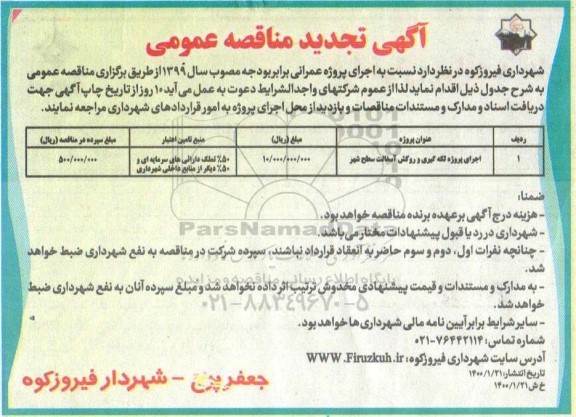 آگهی تجدید مناقصه عمومی
شهرداری فیروزکوه در نظر دارد نسبت به اجرای پروژه عمرانی برابر بودجه مصوب سال ۱۳۹۹ از طریق برگزاری مناقصه عمومی
به شرح جدول ذیل اقدام نماید لذا از عموم شرکتهای واجدالشرایط دعوت به عمل می آید ۱۰ روز از تاریخ چاپ آگهی جهت
دریافت اسناد و مدارک و مستندات مناقصات و بازدید از محل اجرای پروژه به امور قراردادهای شهرداری مراجعه نمایند.
ردیف عنوان پروژه مبلغ (ریال) منبع تامین اعتبار مبلغ سپرده در مناقصه (ریال)
۱ اجرای پروژه لکه گیری و روکش آسفالت سطح شهر ۱۰/۰۰۰/۰۰۰/۰۰۰ ۵۰٪ تملک دارائی های سرمایه ای و ۵۰۰/۰۰۰/۰۰۰
۵۰٪ دیگر از منابع داخلی شهرداری
ضمنا:
- هزینه درج آگهی بر عهده برنده مناقصه خواهد بود.
- شهرداری در رد یا قبول پیشنهادات مختار می باشد.
- چنانچه نفرات اول، دوم و سوم حاضر به انعقاد قرارداد نباشند، سپرده شرکت در مناقصه به نفع شهرداری ضبط خواهد
شد.
- به مدارک و مستندات و قیمت پیشنهادی مخدوش ترتیب اثر داده نخواهد شد و مبلغ سپرده آنان به نفع شهرداری ضبط
خواهد شد.
- سایر شرایط برابر آیین نامه مالی شهرداری ها خواهد بود.
شماره تماس: ۷۶۴۴۲۱۱۴-۰۲۱
آدرس سایت شهرداری فیروزکوه: WWW.Firuzkuh.ir
تاریخ انتشار: ۱۴۰۰/۱/۲۱
خ ش ۱۴۰۰/۱/۲۱
جعفر پرچ - شهردار فیروزکوه
ParsNamadData
پایگاه اطلاع رسانی مناقصه و مزایده
۰۲۱-۸۸۳۴۹۶۷۰-۵